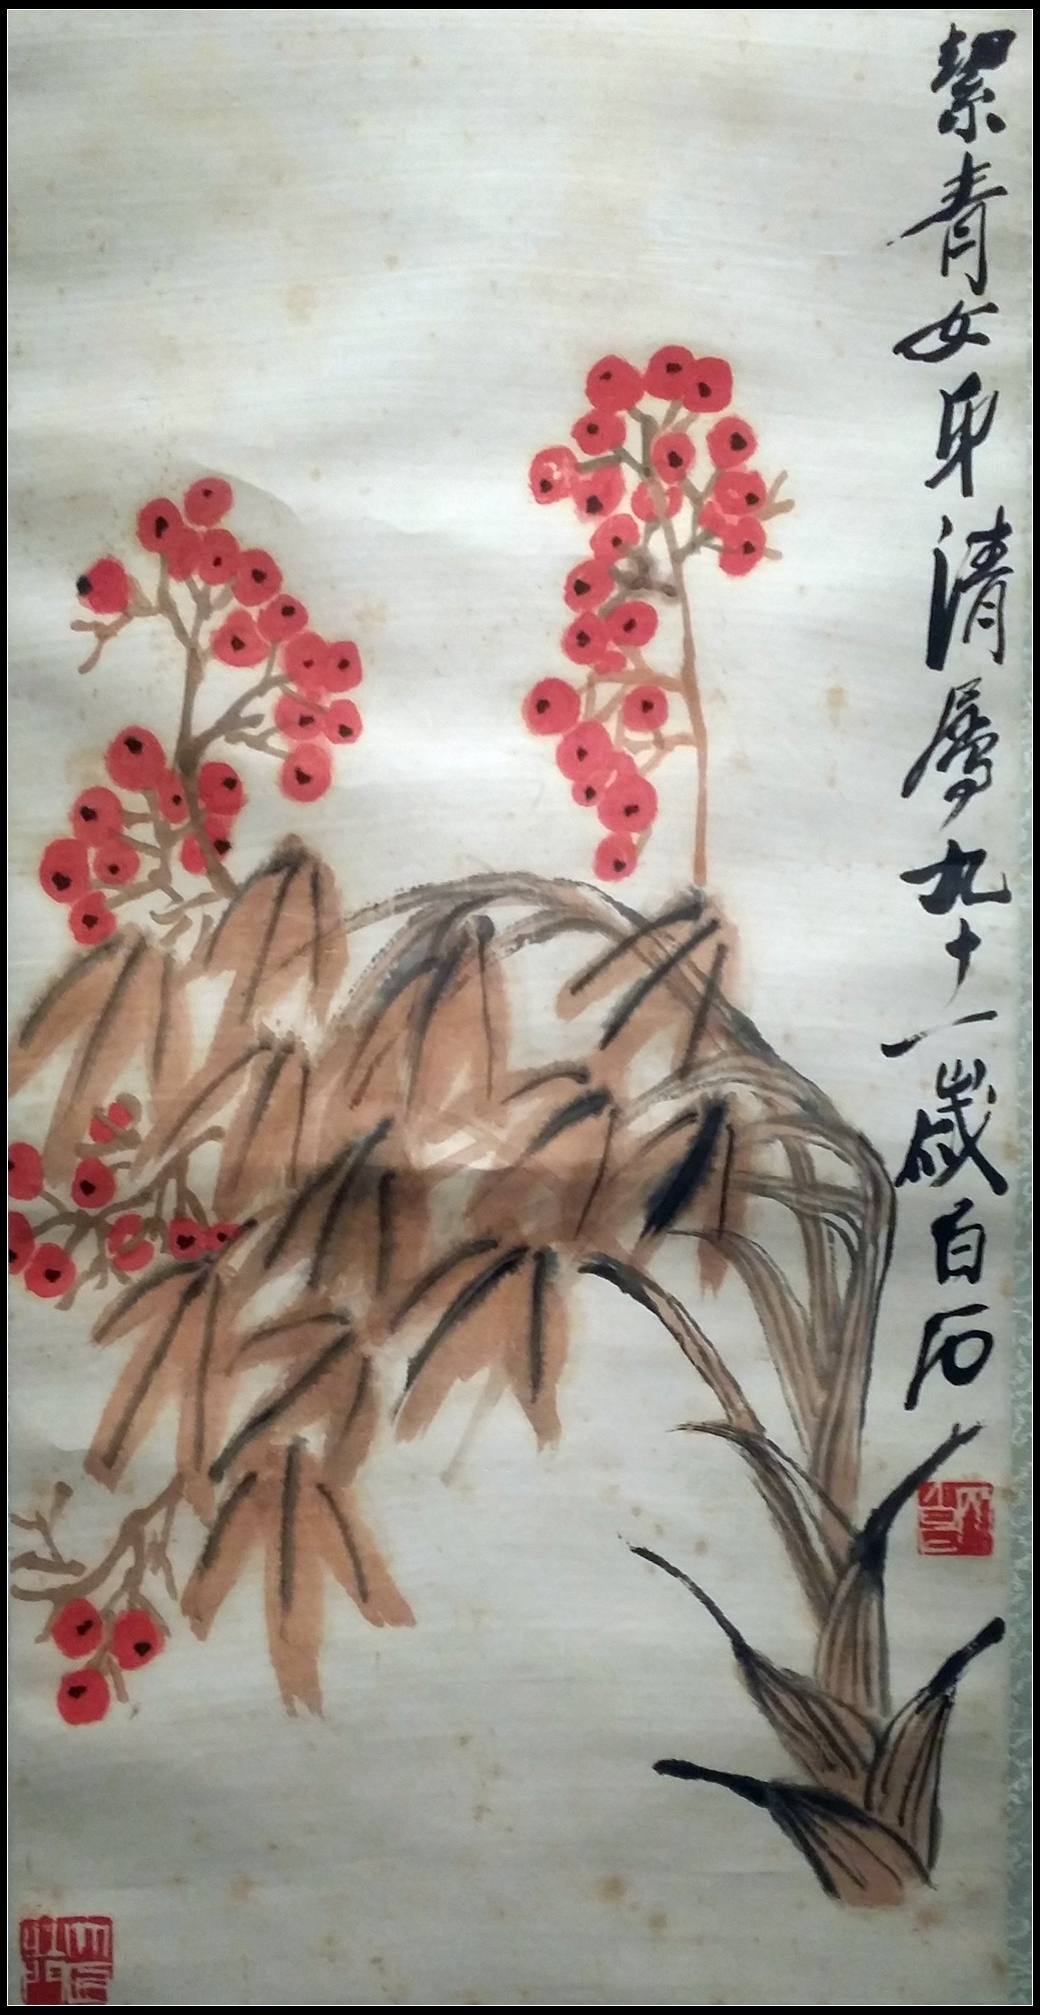 絜青女弟清屬九十一歲白石